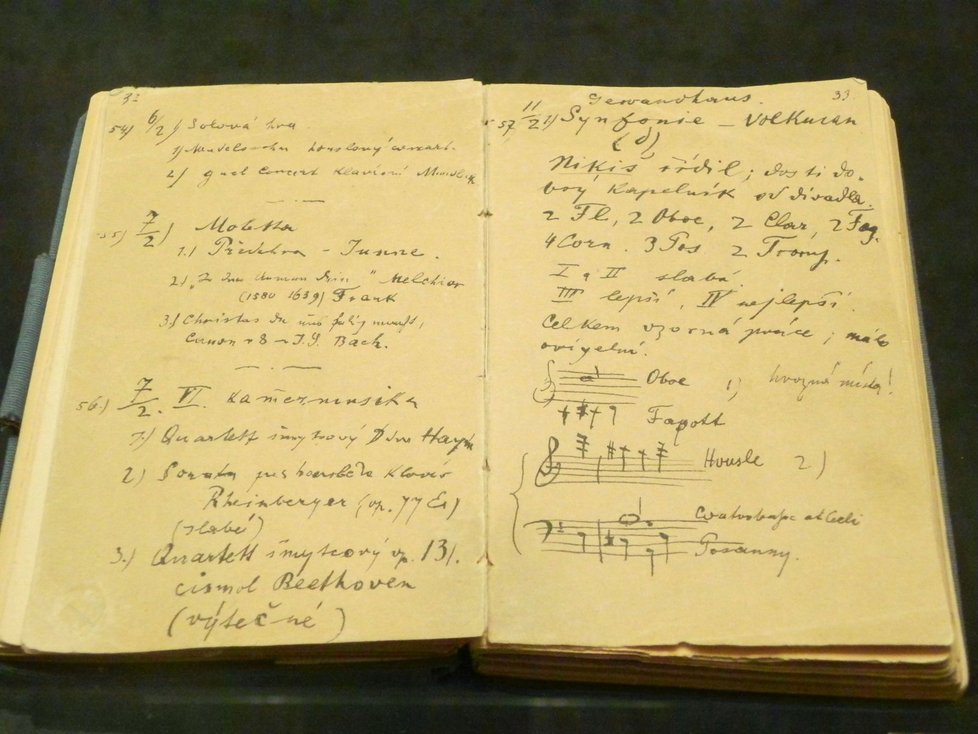 32
54) 6/2 1) Solová hra.
1) houslový concert.
2) g moll Concert klavírní
55) 7/2) Motetta
1.) Předehra -
2) " Melchior
(1580 1639) Frank
3) Christus
Canon 8 J. S. Bach.
56.) 7/2. VI. Kammermusika
1.) Quartett smyčcový D dur Haydn
2) Sonata pro housle a klavír
Rheinberger (op. 77 Es)
(slabé)
3.) Quartett smyčcový op. 131.
cismol Beethoven
(výtečné)
33
Gewandhaus.
57 11/2 1) Synfonie - Volkman
(d)
Nikiš řídil; dosti do-
brý kapelník od divadla.
2 Fl, 2 Oboe, 2 Clar, 2 Fag.
4 Corn. 3 Pos 2 Tromp.
I a II slabá
III lepší, IV nejlepší.
Celkem vzorná práce; málo
originelní.
Oboe 1) hrozná místa!
Fagott
Housle 2)
Posauny.